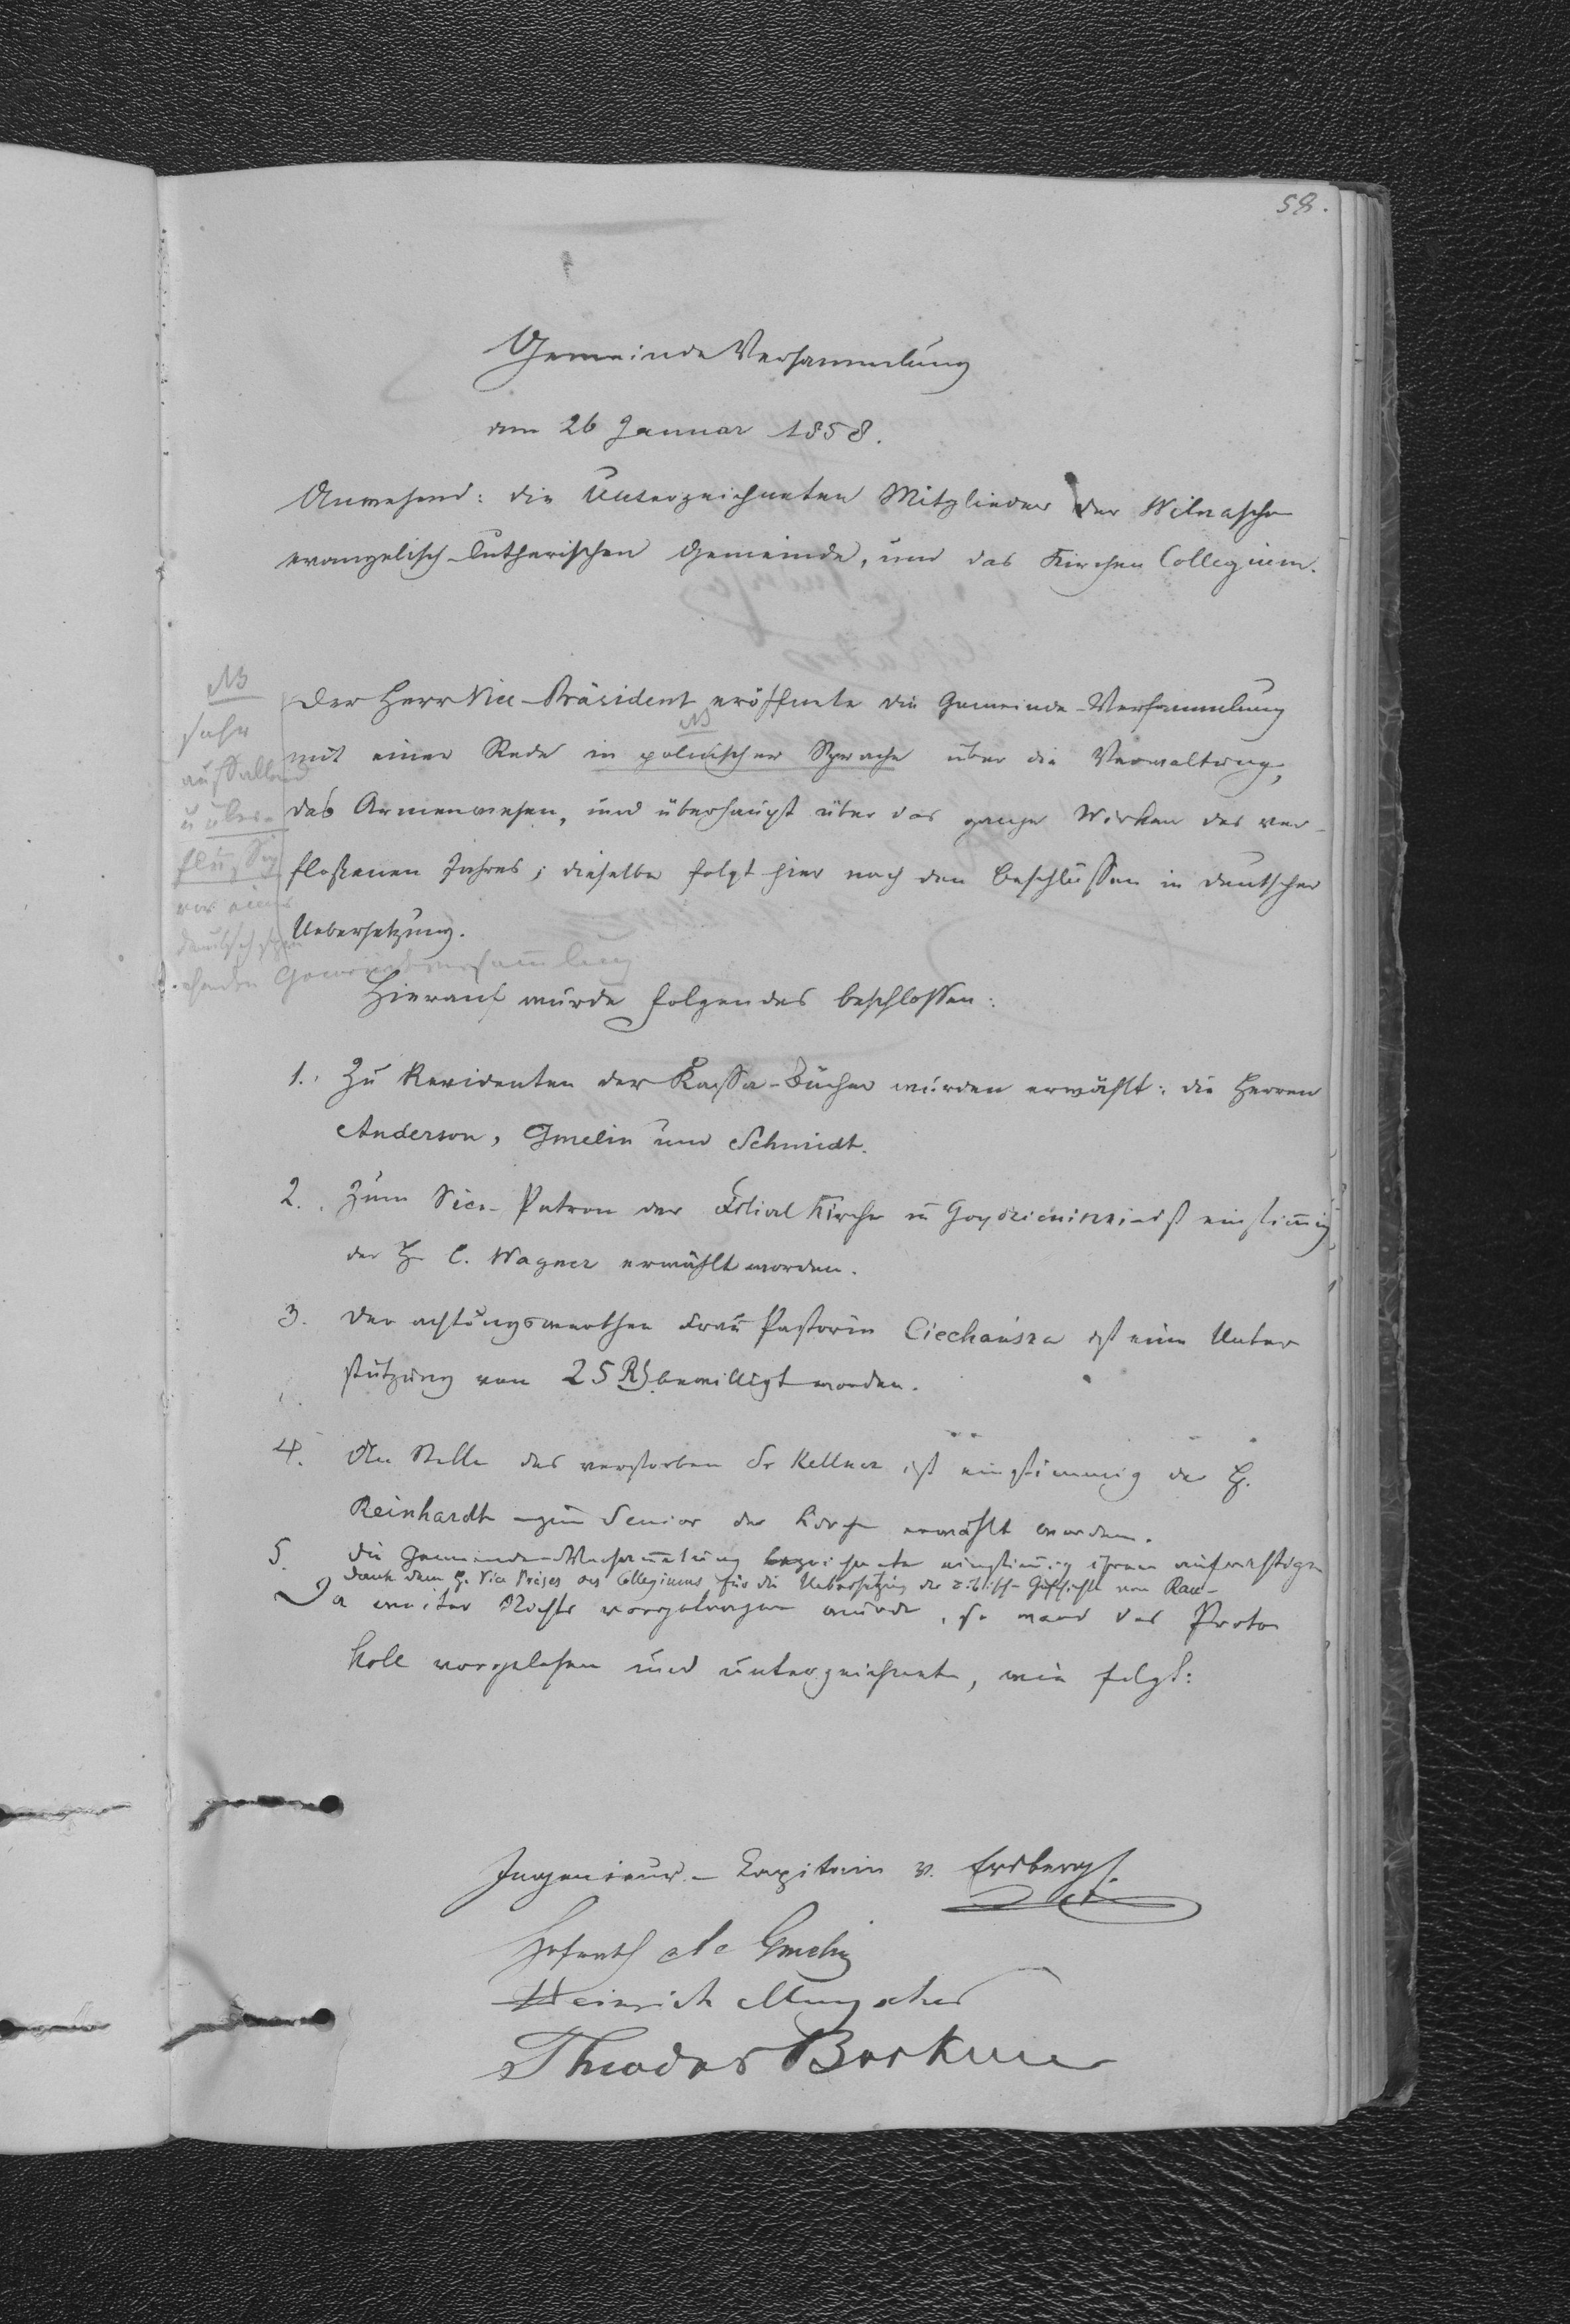 58.
Gemeinde Versammlung
am 26 Januar 1858.
Anwesend: die Unterzeichneten Mitglieder der Wilnaschen
evangelisch-lutherischen Gemeinde, und das Kirchen Collegium.
Der Herr Vice-Präsident eröffnete die Gemeinde-Versammlung
NB
mit einer Rede in polnischer Sprache über die Verwaltung,
das Armenwesen, und überhaupt über das ganze Wirken des ver-
floßenen Jahres; dieselbe folgt hier nach den Beschlüssen in deutscher
Uebersetzung.
NB
sehr
auffallend
u über-
flüssig
vor einer
deutsch spre-
chenden Gemeindeversammlung
Hierauf wurde folgendes beschlossen:
1. Zu Revidenten der Kassa-Bücher wurden erwählt: die Herren
Anderson, Gmelin und Schmidt.
2. Zum Vice-Patron der Filial Kirche zu ist einstimig
der H. C. Wagner erwählt worden.
3. Der achtungswerthen Frau Pastorin Ciechańska ist eine Unter
stützung von 25 R. bewilligt worden.
4. An Stelle des verstorben Dr Kellner ist einstimmig der H.
Reinhardt zum Senior der Kirche erwählt worden.
5. Die Gemeinde-Versamlung bezeichnete einstimig ihren aufrichtigen
Dank dem H. Vice Präses des Collegiums für die Uebersetzung der biblisch-Geschichte von Rau-
Da weiter Nichts vorgetragen wurde, so ward das Proto
koll vorgelesen und unterzeichnet, wie folgt:
Ingenieur-Kapitain v. Erdberg
Hofrath Gmelin
Heinrich
Theodor